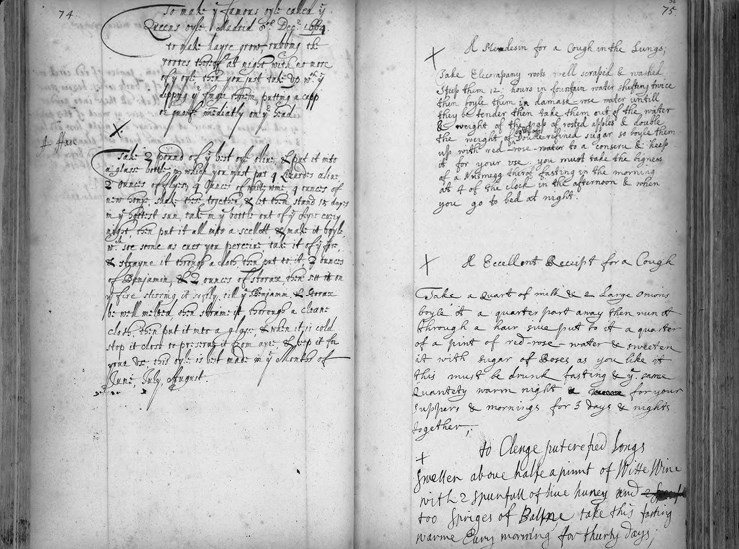 74
To make yͤ famous oyle called yͤ
Queens oyle
to make hayre grow, rubbing the
rootes at night with as more
of yͤ oyle then you just take up wͭʰ yͤ
dipping yͤ finger therein, putting a capp
imediatly on yͤ head.
X.
Take 2 pound of yͤ best oyle olive, & put it into
a glass bottle, in which you must put 4 Lizards alive
2 ounces of 4 ounces of wine, 4 ounces of
new honey, shake these together, & let them stand 12 days
in yͤ hottest sun, take in yͤ bottle out of yͤ every
night, then put it all into a scellett, & make it boyle,
soe soone as ever you perceive take it of yͤ fire,
& strayne it through a cloth then put to it, 2 ounces
of Benjamin, & 2 ounces of Storax, then set it on
yͤ fire stirring it softly, till yͤ Benjamin, & Storax
be well melted, then straine it through a cleane
cloth, then put it into a glass, & when it is cold
stop it close to preserve it from ayre, & keep it for
your use this oyle is best made in yͤ Months of
June, July, August.
75
X
A for a Cough in the Lungs,
Take Elecampany roots well scraped & washed
steep them 12 hours in fountain water shifting twice
then boyle them in damask rose water untill
they be tender then take them out of the water
& weight of the pap of rosted apples & double
the weight of refined sugar so boyle them
up with red rose water to a conserve & keep
it for your use you must take the bigness
of a Nutmegg therof fasting in the morning
at 4 of the clock in the afternoon & when
you go to bed at night.
X
A Eccellent Receipt for a Cough
Take a Quart of milk & 2 Large onions
boyle it a quarter part away then run it
through a hair sive put to it a quarter
of a pint of red rose water & sweeten
it with sugar of Roses as you like it
this must be drunk fasting & yͤ same
Quantety warm night & for your
suppers & mornings for 3 days & nights
together,
X
to Clenge putereped Longs
Swellen above halfe a pinnt of Witte Wine
with 2 spunfull of live huney and
too spriges of Balme take this fasting
warme Eury morning for thurty days,